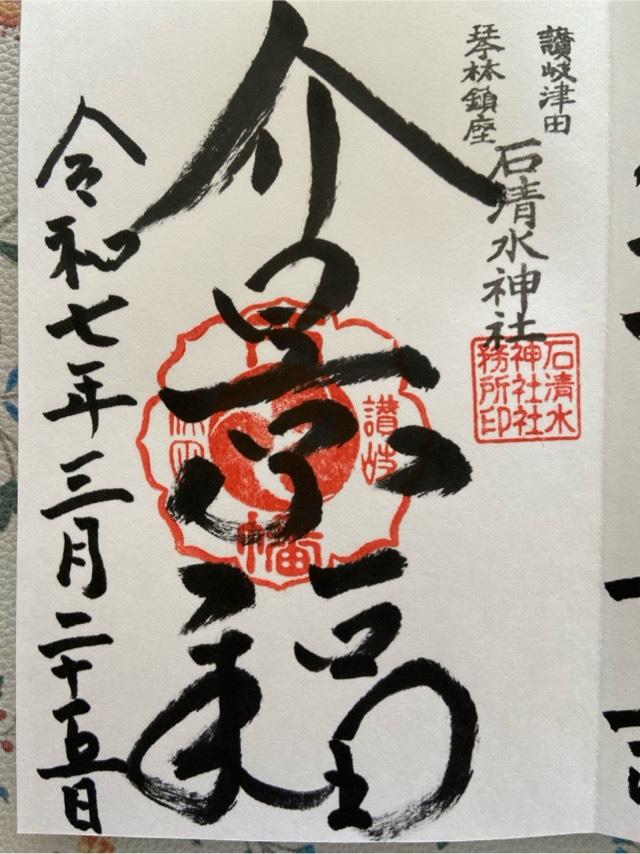 讃岐津田
琴林鎮座
石清水神社
石清水
神社社
務所印
介景福
讃岐
八幡
津田
令和七年三月二十五日